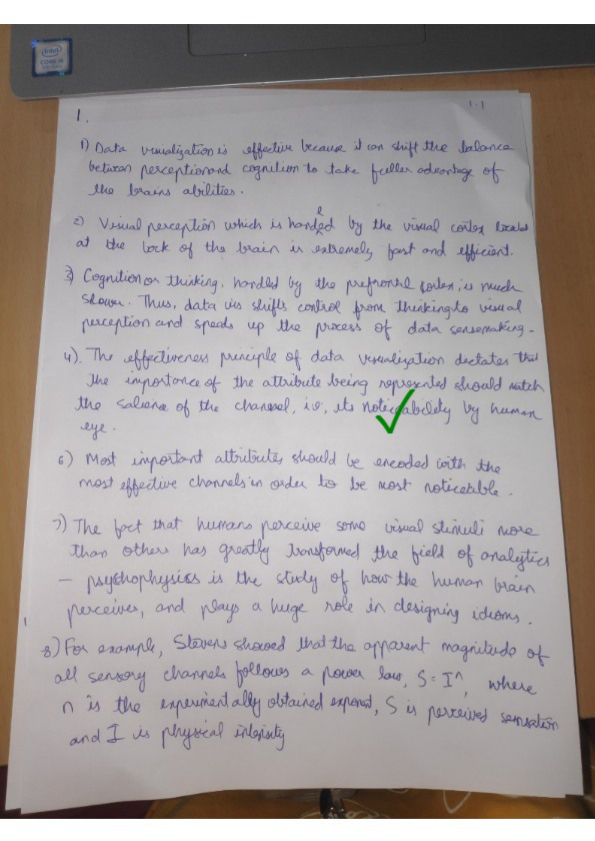 intel
CORE i5
1.
1.1
1) Data visualization is effective because it can shift the balance
between perception and cognition to take fuller advantage of
the brains abilities.
2) Visual perception which is handled by the visual cortex located
at the back of the brain is extremely fast and efficient.
3) Cognition or thinking, handled by the prefrontal cortex, is much
slower. Thus, data vis shifts control from thinking to visual
perception and speeds up the process of data sensemaking.
4). The effectiveness principle of data visualization dictates that
the importance of the attribute being represented should match
the salience of the channel, i.e, its noticeability by human
eye.
6) Most important attributes should be encoded with the
most effective channels in order to be most noticeable.
7) The fact that humans perceive some visual stimuli more
than others has greatly transformed the field of analytics
– psychophysics is the study of how the human brain
perceives, and plays a huge role in designing idioms.
8) For example, Stevens showed that the apparent magnitude of
all sensory channels follows a power law, S = I^n, where
n is the experimentally obtained exponent, S is perceived sensation
and I is physical intensity